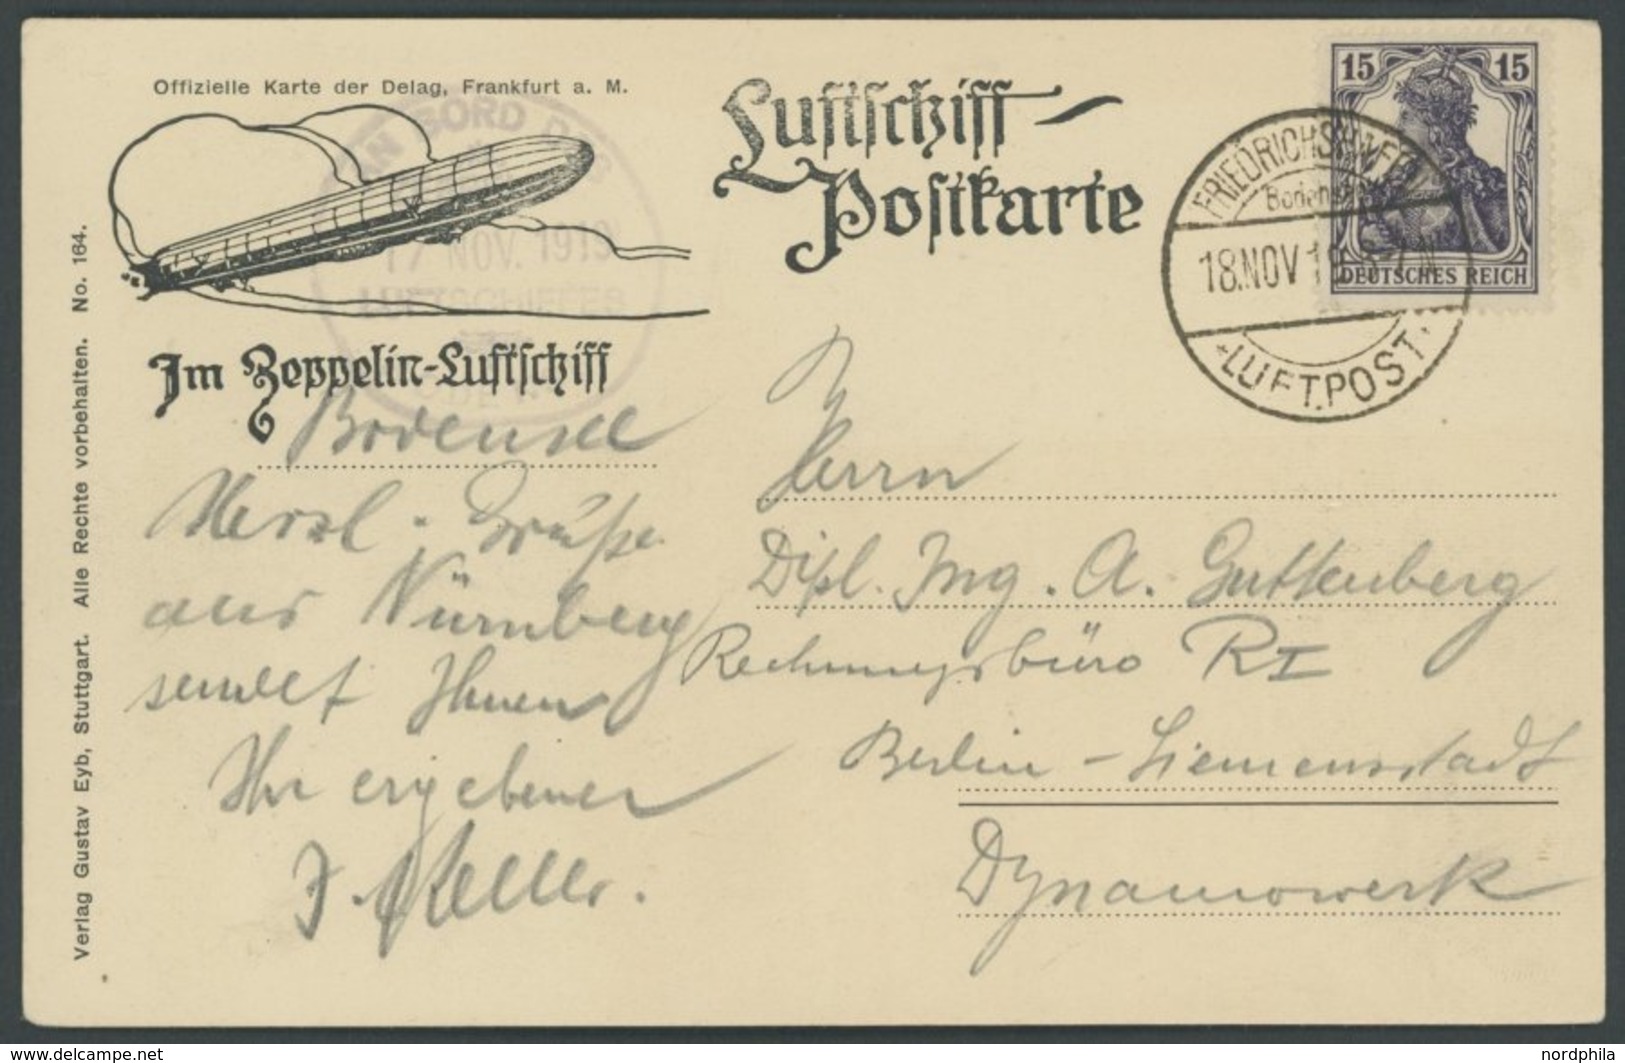 Offizielle Karte der Delag, Frankfurt a. M.
Luftschiff-
Postkarte
15 15
DEUTSCHES REICH
FRIEDRICHSHAFEN
Bodensee
18.NOV 19
*LUFT.POST*
AN BORD DES
17 NOV. 1919
LUFTSCHIFFES
Im Zeppelin-Luftschiff
Bodensee
Herzl. Grüße
aus Nürnberg
sendet Ihnen
Ihr ergebener
J. Keller.
Herrn
Dipl. Ing. A. Guttenberg
Rechnungsbüro RI
Berlin - Siemensstadt
Dynamowerk
Verlag Gustav Eyb, Stuttgart. Alle Rechte vorbehalten. No. 164.
www.delcampe.net
nordphila